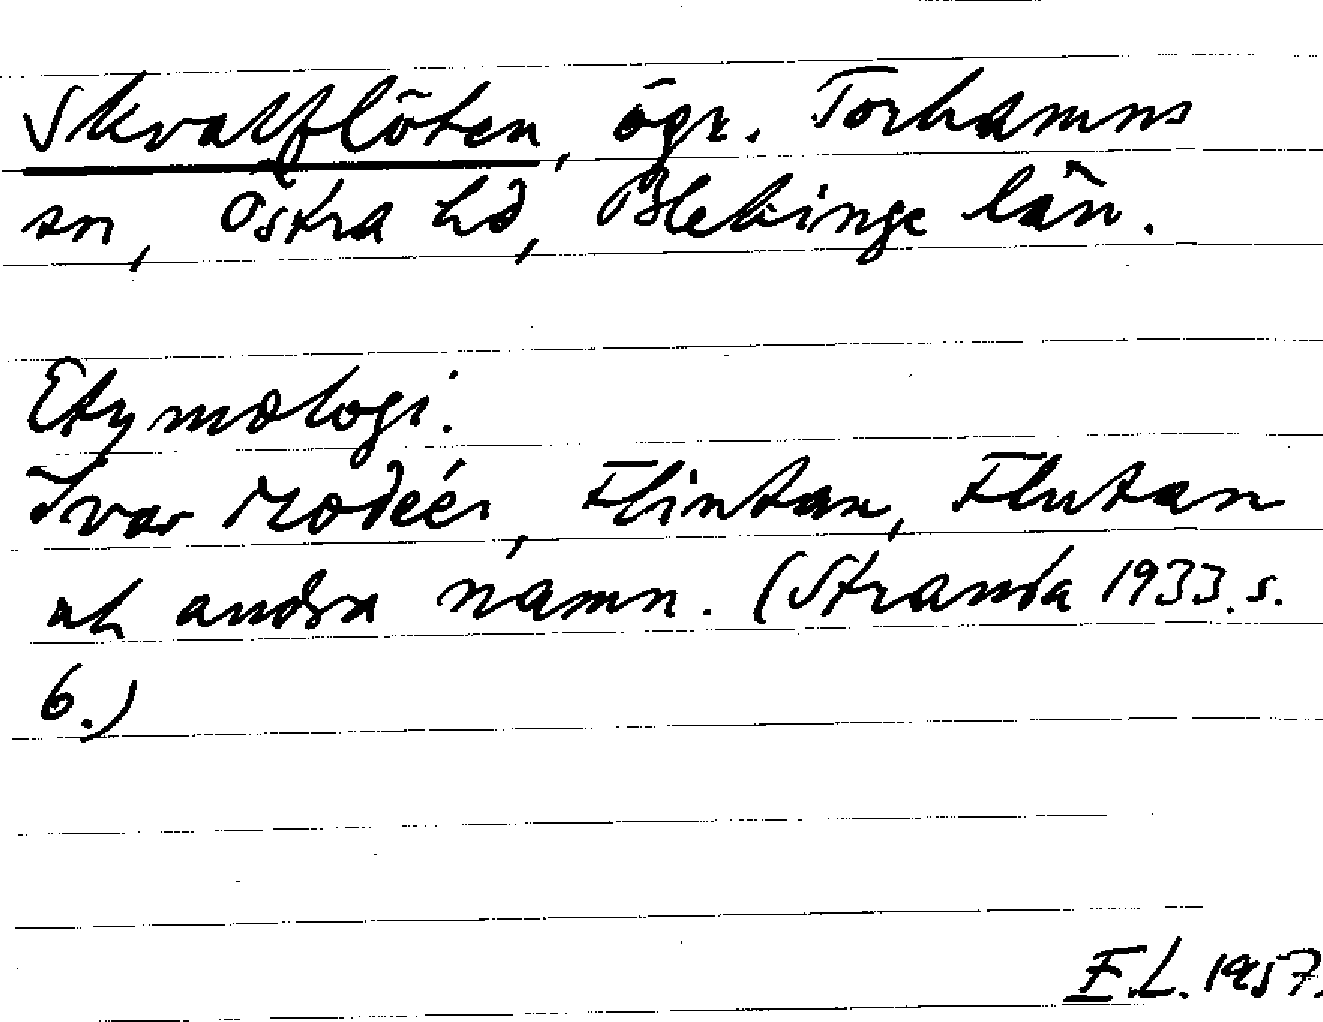 Skvalflöten, ögr. Torhamns
sn, Östra hd, Blekinge län.
Etymologi.
Ivar Modéer, Flintan, Flutan
och andra namn. (Stranda 1933. s.
6.)
F.L. 1957.